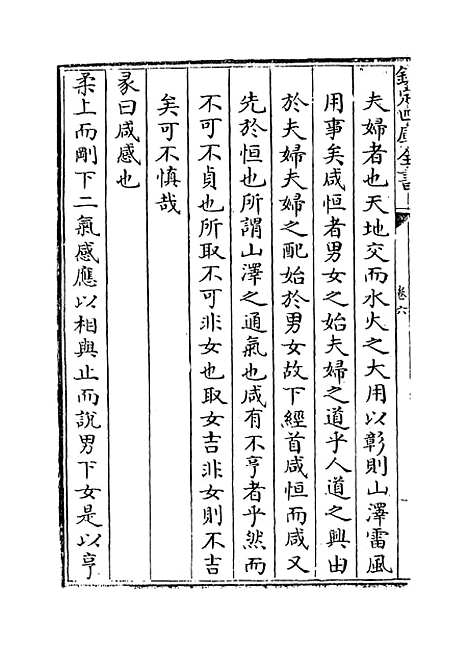 欽定四庫全書
卷六
夫婦者也天地交而水火之大用以彰則山澤雷風
用事矣咸恒者男女之始夫婦之道乎人道之興由
於夫婦夫婦之配始於男女故下經首咸恒而咸又
先於恒也所謂山澤之通氣也咸有不亨者乎然而
不可不貞也所取不可非女也取女吉非女則不吉
矣可不慎哉
彖曰咸感也
柔上而剛下二氣感應以相與止而說男下女是以亨